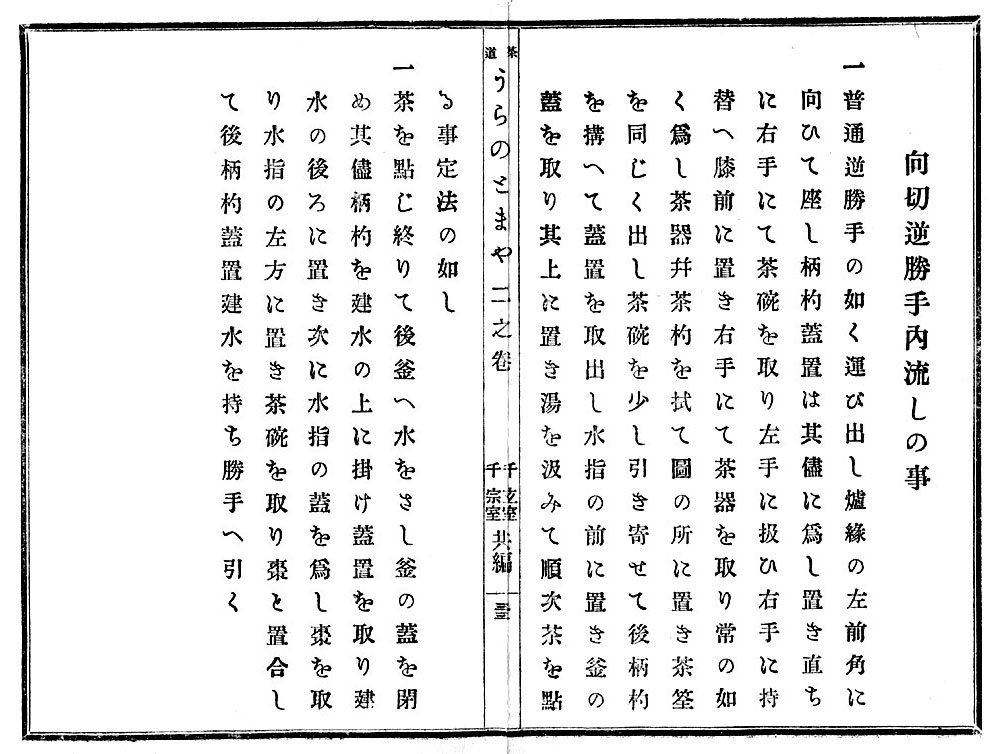 向切逆勝手內流しの事
一普通逆勝手の如く運び出し爐緣の左前角に
向ひて座し柄杓蓋置は其儘に爲し置き直ち
に右手にて茶碗を取り左手に扱ひ右手に持
替へ膝前に置き右手にて茶器を取り常の如
く爲し茶器幷茶杓を拭て圖の所に置き茶筌
を同じく出し茶碗を少し引き寄せて後柄杓
を搆へて蓋置を取出し水指の前に置き釜の
蓋を取り其上に置き湯を汲みて順次茶を點
茶道
うらのとまや二之卷
千玄室
千宗室
共編
る事定法の如し
一茶を點じ終りて後釜へ水をさし釜の蓋を閉
め其儘柄杓を建水の上に掛け蓋置を取り建
水の後ろに置き次に水指の蓋を爲し棗を取
り水指の左方に置き茶碗を取り棗と置合し
て後柄杓蓋置建水を持ち勝手へ引く